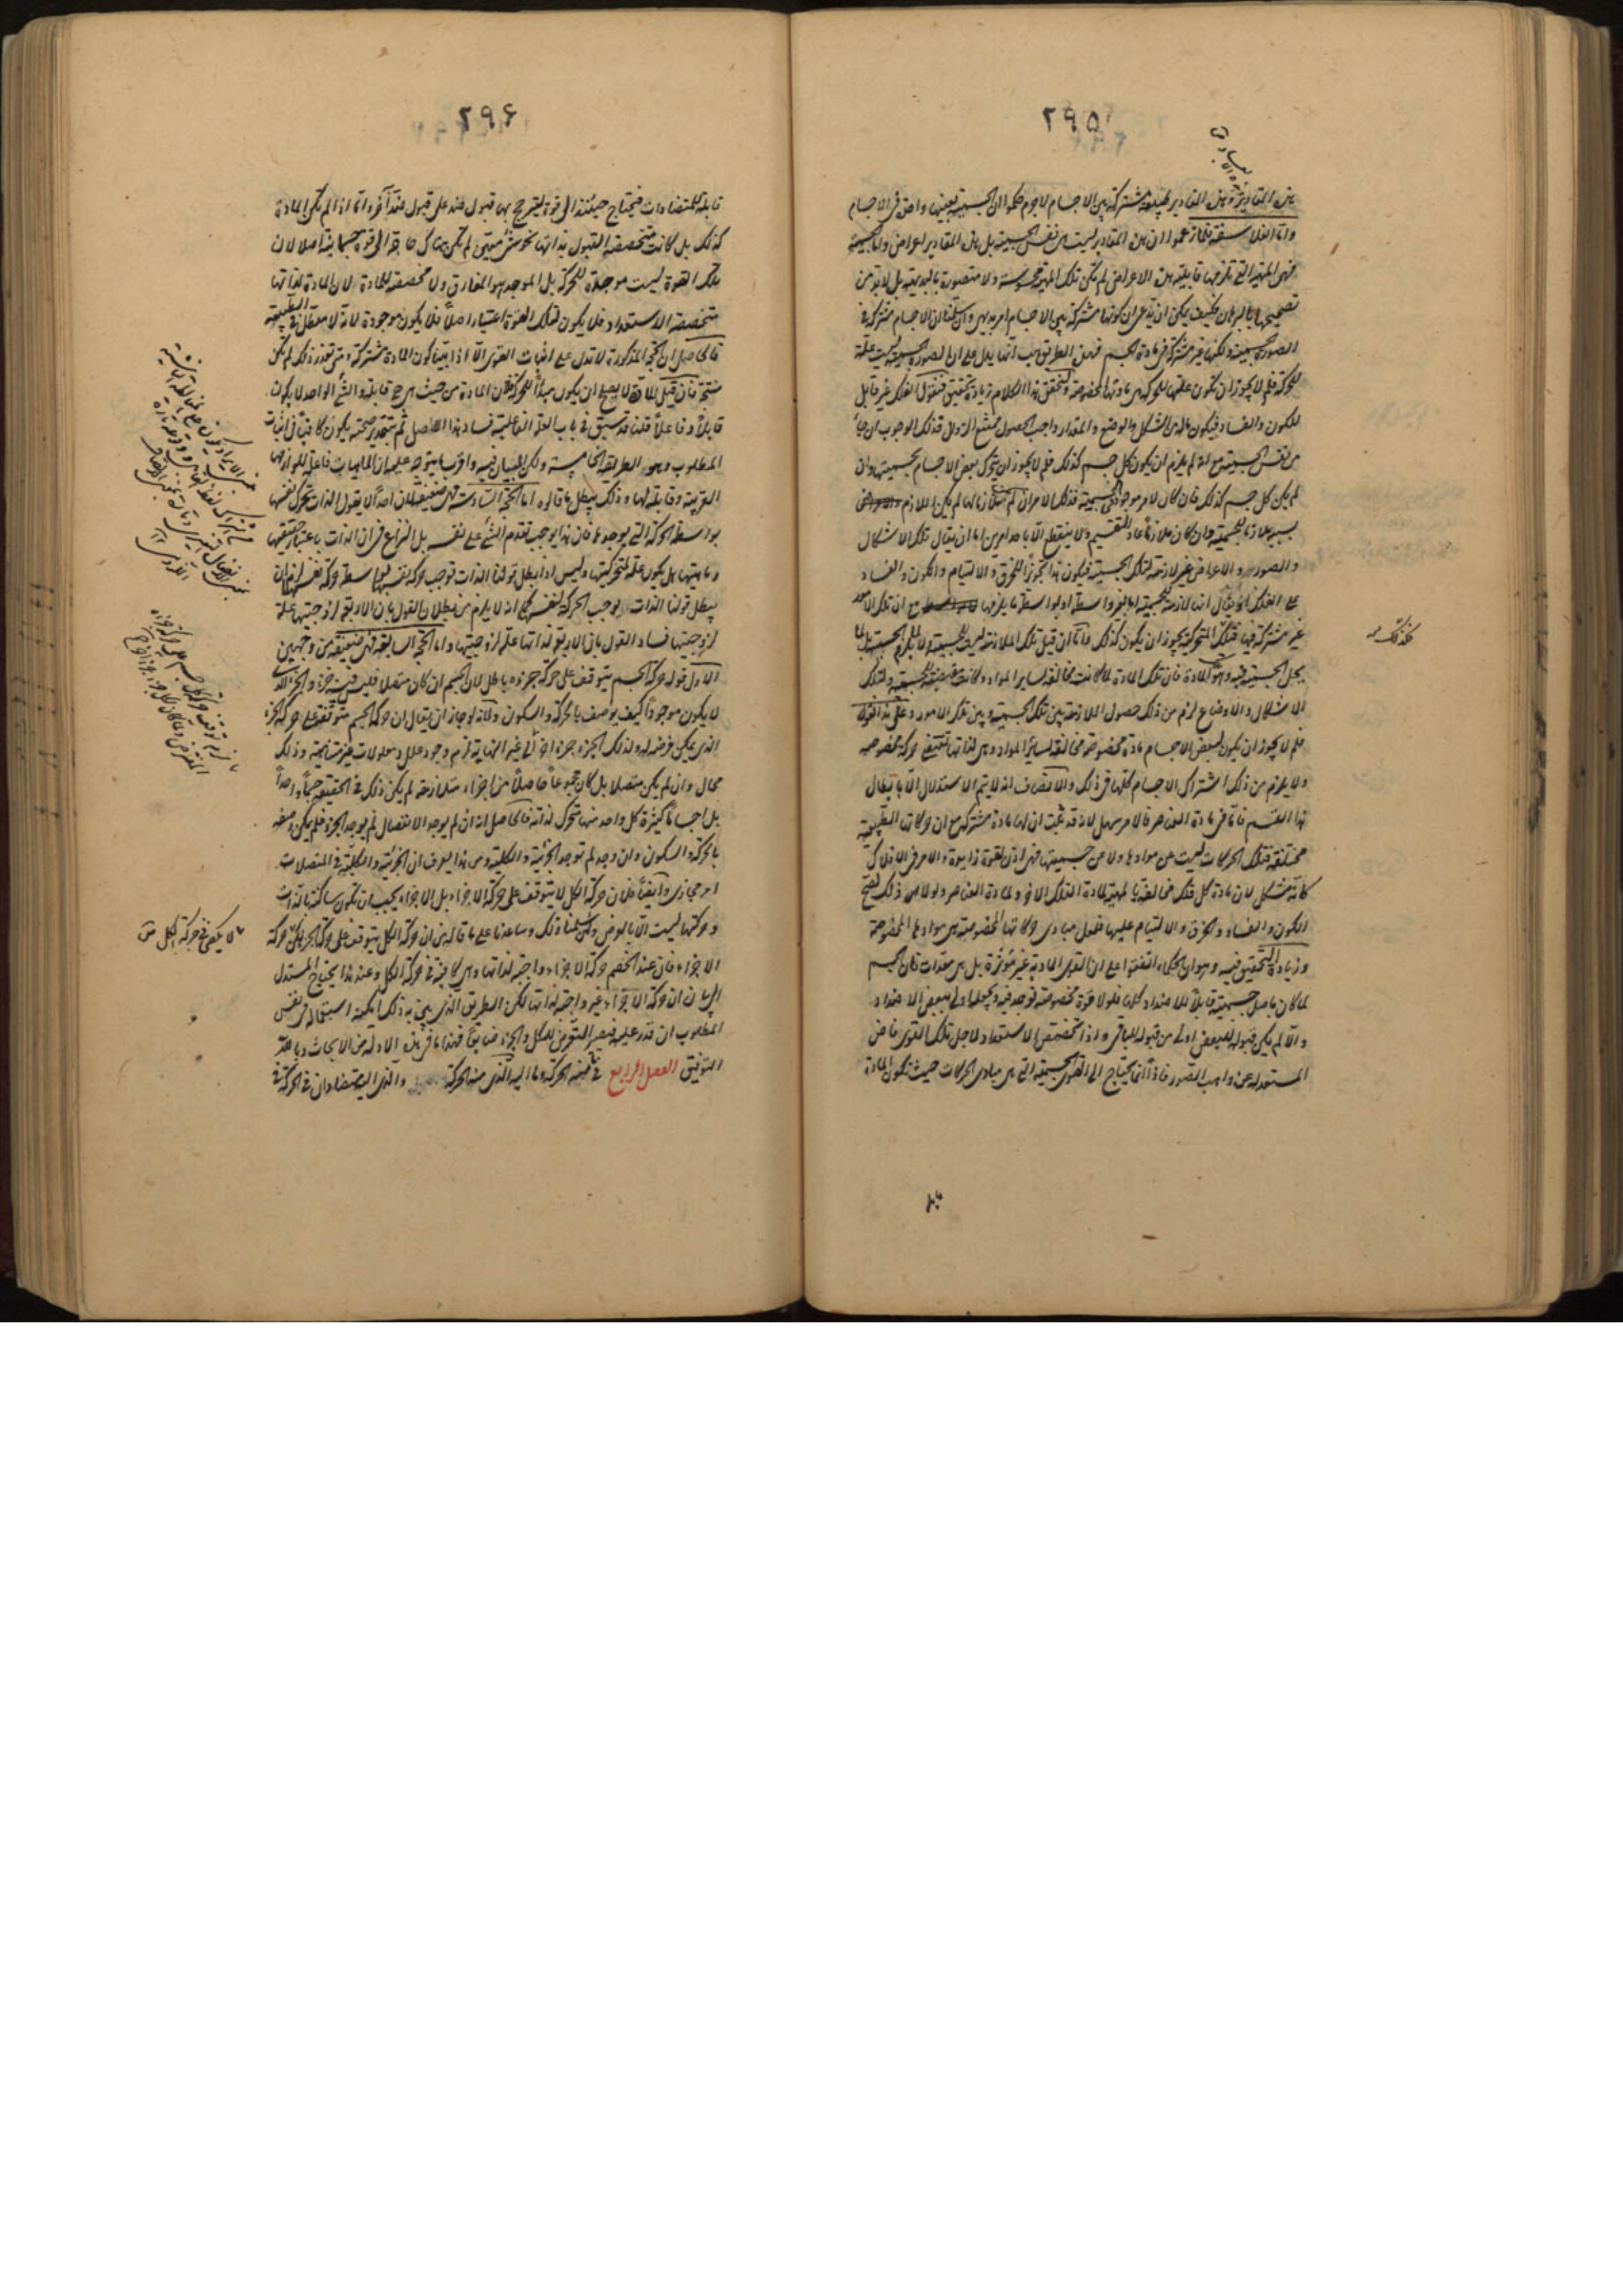 ٢٩٥
هذه المقادير وهذه المقادير طبيعة مشتركة بين الاجسام لا جرم حكموا ان الجسمية بعينها واحدة في الاجسام
واما الفلاسفة فلما زعموا ان هذه المقادير ليست هي نفس الجسمية بل هذه المقادير اعراض واما الجسمية
فهي المهية التي تلزمها قابلية هذه الاعراض لم تكن تلك المهية محسوسة ولا متصورة بالبديهية بل لا بد من
تصحيحها بالبرهان فكيف يمكن ان يدعى ان كونها مشتركة بين الاجسام امر بديهي وان سلمنا ان الاجسام مشتركة في
الصورة الجسمية ولكنها غير مشتركة في مادة الجسم فهذه الطريق هب انها يدل على ان الصورة الجسمية ليست علة
للحركة فلم لا يجوز ان تكون علتها للحركة هي مادتها المخصوصة ولتحقق هذا الكلام زيادة تحقيق فنقول الفلك غير قابل
للكون والفساد فيكون ما له من الشكل والوضع والمقدار واجب الحصول ممتنع الزوال فذلك الوجوب ان جاء
من نفس الجسمية مع انه لم يلزم ان يكون كل جسم كذلك فلم لا يجوز ان يتحرك بعض الاجسام بجسميتها وان
لم يكن كل جسم كذلك فان كان لامر موجود في الجسمية فذلك الامر ان لم يكن ملازما لها لم يكن اللازم
بسببه ملازما للجسمية وان كان ملازما عاد التقسيم ولا ينقطع الا باحد امرين اما ان يقال تلك الاشكال
والصور والاعراض غير لازمة لتلك الجسمية فيكون هذا تجويزا للخرق والالتيام والكون والفساد
على الفلك او يقال انها لازمة للجسمية اما بغير واسطة او بواسطة ما يلزمها مع ان تلك الامور
غير مشتركة فيها فتلك المتحركية يجوز ان يكون كذلك فاما ان قيل تلك الملازمة ليست للجسمية ولا لما يلزم الجسمية بل لما
يحل الجسمية فيه وهو المادة فان تلك المادة لما كانت مخالفة لساير المواد وكانت مقتضية للجسمية ولتلك
الاشكال والاوضاع لزم من ذلك حصول الملازمة بين تلك الجسمية وبين تلك الامور وعلى هذا نقول
فلم لا يجوز ان يكون لبعض الاجسام مادة مخصوصة مخالفة لسائر المواد وهي لذاتها تقتضي حركة مخصوصة
ولا يلزم من ذلك اشتراك الاجسام كلها في ذلك والانصاف انه لا يتم الاستدلال الا بابطال
هذا القسم فاما في مادة العناصر فالامر سهل لانه قد ثبت ان لها مادة مشتركة مع ان حركاتها الطبيعية
مختلفة فتلك الحركات ليست عن موادها ولا عن جسميتها فهي اذن لقوة زايدة والامر في الافلاك
كانه مشكل لان مادة كل فلك مخالفة بالمهية لمادة الفلك الآخر ولمادة العناصر ولولا ذلك لصح
الكون والفساد والخرق والالتيام عليها فلعل مبادي حركاتها المخصوصة هي موادها المخصوصة
وزيادة التحقيق فيه وهو ان الحكماء اتفقوا على ان القوى المادية غير مؤثرة بل هي معدات فان الجسم
لما كان باصل جسميته قابلا للاضداد كلها فلولا قوة مخصوصة توجد فيه ويجعلها اولى ببعض الاضداد
والا لم يكن قبوله للبعض اولى من قبوله للباقي واذا تخصص الاستعداد لاجل تلك القوى فاض
المستعد له عن واهب الصور فاذا انما يحتاج الى القوى الجسمية التي هي مبادي الحركات حيث تكون المادة
قابلة
فكذلك
٢٩٦
قابلة للمتضادات فيحتاج حينئذ الى قوة ليترجح بها قبول ضد على قبول ضد آخر واما اذا لم تكن المادة
كذلك بل كانت متخصصة القبول بذاتها نحو شيء معين لم تكن هناك حاجة الى قوة جسمانية اصلا لان
تلك القوة ليست موجدة للحركة بل الموجد هو المفارق ولا مخصصة للمادة لان المادة لذاتها
متخصصة الاستعداد فلا يكون لتلك القوة اعتبار اصلا فلا يكون موجودة لانه لا معطل في الطبيعة
فالحاصل ان الحجة المذكورة لا تدل على اثبات القوى الا اذا بينا كون المادة مشتركة ومتى تعذر ذلك لم تكن
منتجة فان قيل المادة لا يصح ان يكون مبدأ للحركة لان المادة من حيث هي هي قابلة والشئ الواحد لا يكون
قابلا وفاعلا قلنا قد سبق في باب العلة الفاعلية فساد هذا الاصل ثم بتقدير صحته يكون كافيا في اثبات
المطلوب وهو الطريقة الخامسة ولكن البيان فيه واقرب ما يتوجه عليه ان الماهيات فاعلة للوازمها
القريبة وقابلة لها وذلك يبطل ما قالوه اما الحجة السادسة فهي ضعيفة لان احدا لا يقول الذات تحرك نفسها
بواسطة الحركة التي يوجدها فان هذا يوجب تقدم الشئ على نفسه بل النزاع في ان الذات باعتبار حقيقتها
وماهيتها هل يكون علة لمتحركيتها وليس اذا بطل قولنا الذات توجب حركة نفسها بواسطة حركة نفسها لزم ان
يبطل قولنا الذات يوجب الحركة لنفسه كما انه لا يلزم من بطلان القول بان الاربعة لزوجيتها علة
لزوجيتها فساد القول بان الاربعة لذاتها علة لزوجيتها واما الحجة السابعة فهي ضعيفة من وجهين
الاول قوله حركة الجسم تتوقف على حركة جزءه باطل لان الجسم ان كان متصلا فليس فيه جزء والجزء الذي
لا يكون موجودا كيف يوصف بالحركة والسكون ولانه لو جاز ان يقال ان حركة الجسم متوقفة على حركة الجزء
الذي يمكن فرضه له ولذلك الجزء جزء آخر الى غير النهاية لزم وجود علل ومعلولات غير متناهية وذلك
محال وان لم يكن متصلا بل كان مجموعا حاصلا من اجزاء متلازمة لم يكن ذلك في الحقيقة جسما واحدا
بل اجساما كثيرة كل واحد منها متحرك لذاته فالحاصل انه ان لم يوجد الانفصال لم يوجد الجزء فلم يمكن وصفه
بالحركة والسكون وان وجد لم توجد الجزئية والكلية ومن هذا يعرف ان الجزئية والكلية في المتصلات
امر مجازي وايضا فلان حركة الكل لا يتوقف على حركة الاجزاء بل الاجزاء يجب ان تكون ساكنة بالذات
وحركتها ليست الا بالعرض ولكن سلمنا ذلك وساعدنا على ما قاله من ان حركة الكل يتوقف على حركة الجزء لكن حركة
الاجزاء فان عند الخصم حركة الاجزاء واجبة لذاتها وهي كافية في حركة الكل وعند هذا يحتاج المستدل
الى بيان ان حركة الاجزاء غير واجبة لذاتها لكن الطريق الذي يبين به ذلك يمكنه استعماله في نفس
المطلوب ان قدر عليه فيصير التعرض للكل والجزء ضايعا فهذا ما في هذه الادلة من الابحاث وبالله
التوفيق الفصل الرابع في ما منه الحركة وما اليه الذي منه الحركة والذي اليه يتضادان في الحركة في
ما لا يكفي في حركة الكل